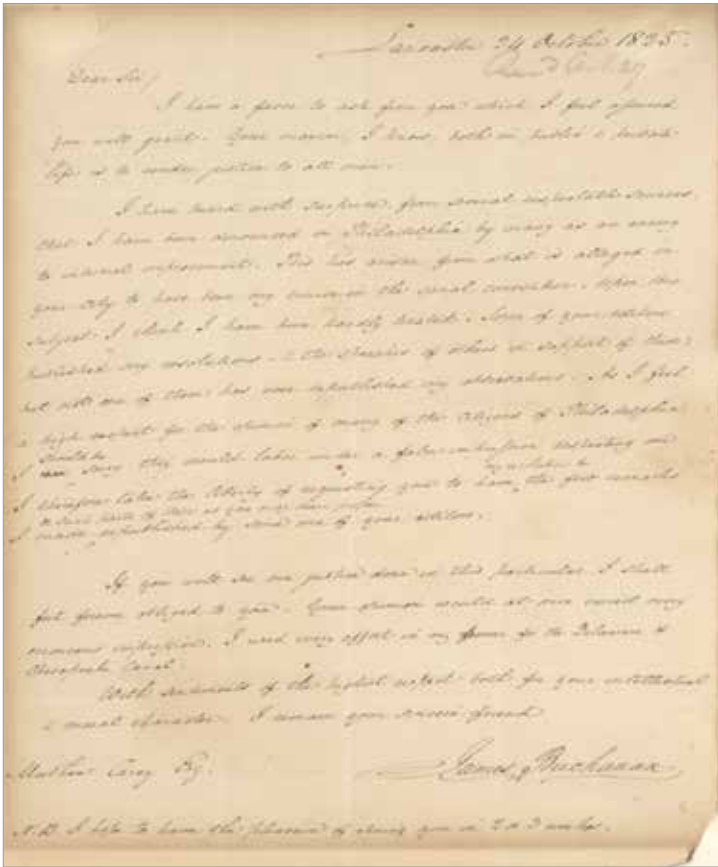 Lancaster 24 October 1825.
Dear Sir/
I have a favor to ask from you which I feel assured
you will grant. Your maxim, I know, both in public & private
life is to render justice to all men.
I have heard with surprise, from several respectable sources
that I have been denounced in Philadelphia by many as an enemy
to internal improvement. This has arisen from what is alleged in
your City to have been my course in the canal convention. Upon this
subject I think I have been hardly treated. Some of your editors
published my resolutions & the speeches of others in support of them;
but not one of them has ever republished my observations. As I feel
a high respect for the opinion of many of the Citizens of Philadelphia
I should be sorry they would labor under a false impression respecting me
I therefore take the liberty of requesting you to have the first remarks
or such parts of them as you may think
I made republished by some one of your editors.
If you will see me justice done in this particular I shall
feel forever obliged to you. Your opinion would at once correct every
erroneous impression. I used every effort in my power for the Delaware &
Chesapeake Canal.
With sentiments of the highest respect both for your intellectual
& moral character I remain your sincere friend
James Buchanan
Mathew Carey Esq.
N.B. I hope to have the pleasure of seeing you in 2 or 3 weeks.